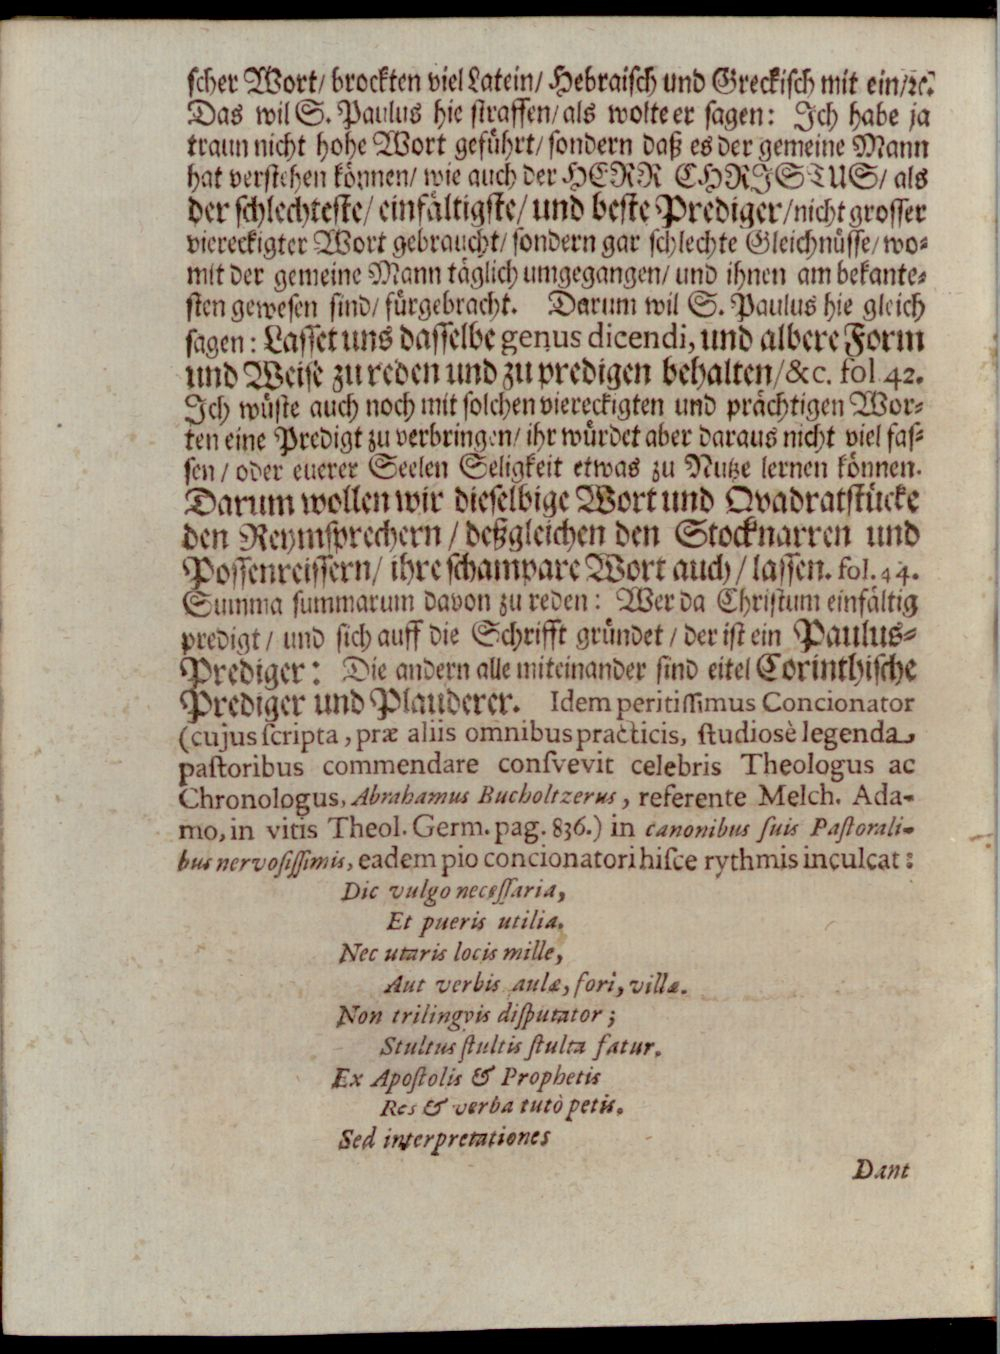 scher Wort/ brockten viel Latein/ Hebraisch und Greckisch mit ein/ꝛc.
Das wil S. Paulus hie straffen/ als wolte er sagen: Ich habe ja
traun nicht hohe Wort geführt/ sondern daß es der gemeine Mann
hat verstehen können/ wie auch der HERR CHRISTUS/ als
der schlechteste/ einfältigste/ und beste Prediger/ nicht grosser
viereckigter Wort gebraucht/ sondern gar schlechte Gleichnüsse/ wo-
mit der gemeine Mann täglich umgegangen/ und ihnen am bekante-
sten gewesen sind/ fürgebracht. Darum wil S. Paulus hie gleich
sagen: Lasset uns dasselbe genus dicendi, und albere Form
und Weise zu reden und zu predigen behalten/ &c. fol. 42.
Ich wüste auch noch mit solchen viereckigten und prächtigen Wor-
ten eine Predigt zu verbringen/ ihr würdet aber daraus nicht viel fas-
sen/ oder euerer Seelen Seligkeit etwas zu Nutze lernen können.
Darum wollen wir dieselbige Wort und Qvadratstücke
den Reymsprechern/ deßgleichen den Stocknarren und
Possenreissern/ ihre schampare Wort auch/ lassen. fol. 44.
Summa summarum davon zu reden: Wer da Christum einfältig
predigt/ und sich auff die Schrifft gründet/ der ist ein Paulus-
Prediger: Die andern alle miteinander sind eitel Corinthische
Prediger und Plauderer. Idem peritissimus Concionator
(cujus scripta, præ aliis omnibus practicis, studiosè legenda,
pastoribus commendare consvevit celebris Theologus ac
Chronologus, Abrahamus Bucholtzerus, referente Melch. Ada-
mo, in vitis Theol. Germ. pag. 836.) in canonibus suis Pastorali-
bus nervosissimis, eadem pio concionatori hisce rythmis inculcat:
Dic vulgo necessaria,
Et pueris utilia.
Nec utaris locis mille,
Aut verbis aulæ, fori, villæ.
Non trilingvis disputator;
Stultus stultis stulta fatur.
Ex Apostolis & Prophetis
Res & verba tutò petis.
Sed interpretationes
Dant